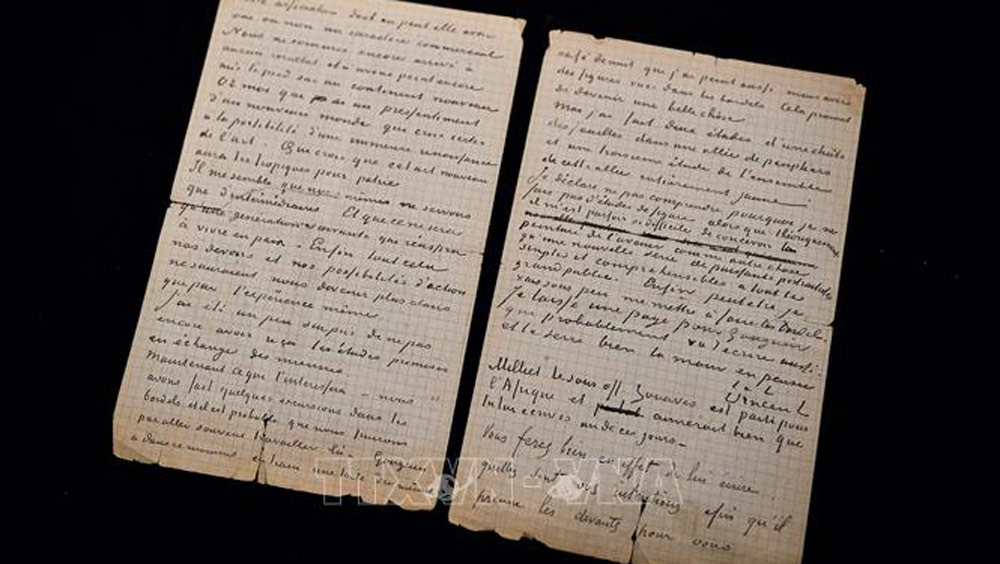 cette association dont on peut elle avoir
oui ou non un caractère commercial
Nous ne sommes encore arrivé à
aucun résultat et n'avons point encore
mis le pied sur un continent nouveau
Or moi que ai un pressentiment
d'un nouveau monde que crois certes
à la possibilité d'une immense renaissance
de l'art. Que crois que cet art nouveau
aura les tropiques pour patrie
Il me semble que nous mêmes ne servons
que d'intermédiaires Et que ce ne sera
qu'une génération suivante que réussira
à vivre en paix. Enfin tout cela
nos devoirs et nos possibilités d'action
ne sauraient nous devenir plus clairs
que par l'expérience même
J'ai été un peu surpris de ne pas
encore avoir reçu les études promises
en échange des miennes
Maintenant ce que t'intéressera – nous
avons fait quelques excursions dans les
bordels et il est probable que nous finirons
par aller souvent travailler là. Gauguin
a dans ce moment en train une toile du même
café de nuit que j'ai peint aussi mais avec
des figures vues dans les bordels Cela promet
de devenir une belle chose
Moi j'ai fait deux études d'une chute
des feuilles dans une allée de peupliers
et une troisième étude de l'ensemble
de cette allée entièrement jaune.
Je déclare ne pas comprendre pourquoi je ne
fais pas d'études de figure alors que théoriquement
il m'est parfois si difficile de concevoir la
peinture de l'avenir comme autre chose
qu'une nouvelle série de puissants portraitistes
simples et compréhensibles à tout le
grand public. Enfin peut être je
vais sous peu me mettre à faire les bordels
Je laisse une page pour Gauguin
que probablement va t'écrire aussi
et te serre bien la main en pensée
t. à t. Vincent
Milliet le sous off. Zouaves est parti pour
l'Afrique et aimerait bien que
tu lui écrives un de ces jours –
Vous ferez bien en effet de lui écrire
quelles sont vos intentions afin qu'il
prenne les devants pour vous
TTXVN-VNA